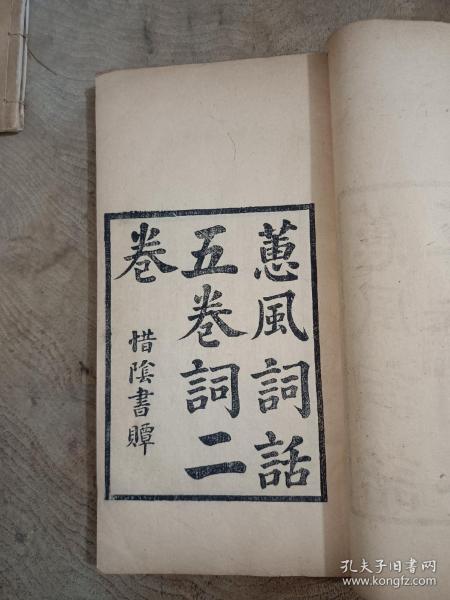 蕙風詞話
五卷詞二
卷
惜陰書贉
孔夫子旧书网
www.kongfz.com